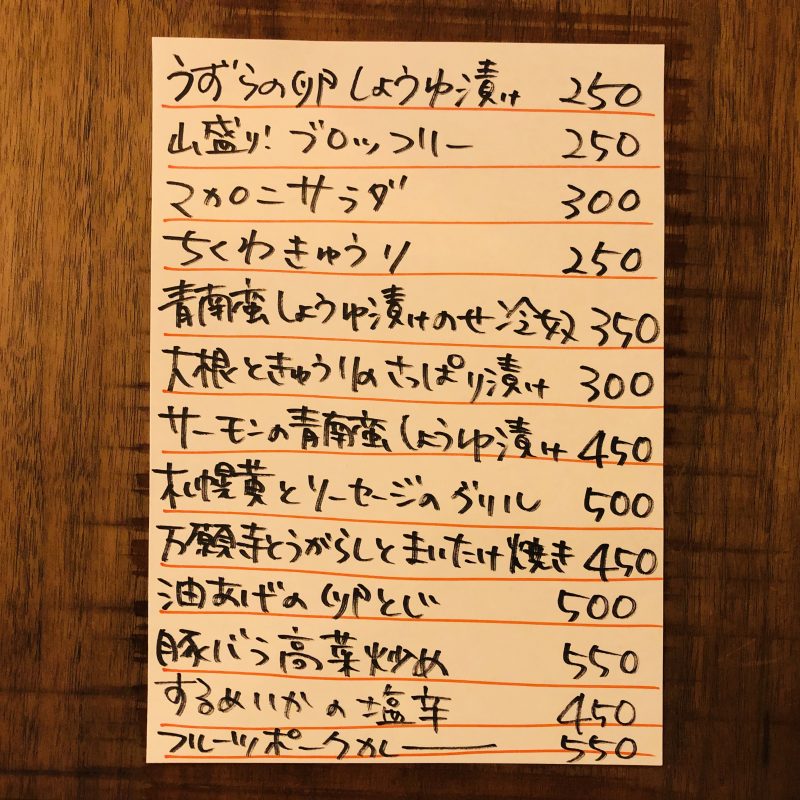 うずらの卵しょうゆ漬け 250
山盛り!ブロッコリー 250
マカロニサラダ 300
ちくわきゅうり 250
青南蛮しょうゆ漬けのせ冷奴 350
大根ときゅうりのさっぱり漬け 300
サーモンの青南蛮しょうゆ漬け 450
札幌黄とソーセージのグリル 500
万願寺とうがらしとまいたけ焼き 450
油あげの卵とじ 500
豚バラ高菜炒め 550
するめいかの塩辛 450
フルーツポークカレー 550